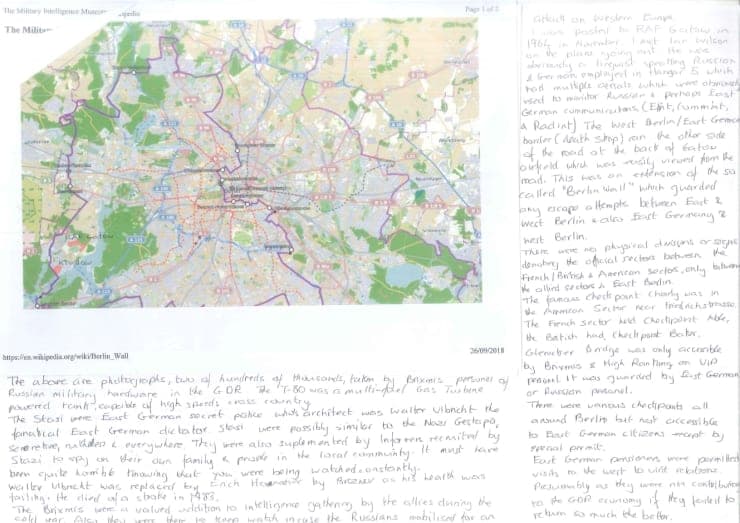 The Military Intelligence Museum
Page 1 of 2
The Milita
Gatow
Kladow
https://en.wikipedia.org/wiki/Berlin_Wall
26/09/2018
The above are photographs, two of hundreds of thousands, taken by Brixmis personel of
Russian military hardware in the GDR The T-80 was a multi-fuel Gas Turbine
powered tank, capable of high speeds cross country.
The Stasi were East German secret police who's architect was Walter Ulbricht the
fanatical East German dictator Stasi were possibly similar to the Nazi Gestapo,
secretive, ruthless & everywhere They were also suplemented by Informers recruited by
Stazi to spy on their own family & people in the local community. It must have
been quite horrible knowing that you were being watched constantly.
Walter Ulbricht was replaced by Erich by as his health was
failing. He died of a stroke in
The Brixmis were a valued addition to intelligence gathering by the allies during the
cold war. Also they were there to keep watch incase the Russians mobilised for an
attack on Western Europe
I was posted to RAF Gatow in
1964 in November. I met Ian Wilson
on the plane going out He was
obviously a linguist speaking Russian
& German employed in Hangar 5 which
had multiple aerials which were obviously
used to monitor Russian & perhaps East
German communications, (Elint, Commint,
& Radint) The West Berlin/East German
border (death strip) ran the other side
of the road at the back of Gatow
airfield which was easily viewed from the
road. This was an extension of the so
called "Berlin Wall" which guarded
any escape attempts between East &
West Berlin & also East Germany &
West Berlin.
There were no physical divisions or
denoting the official sectors between the
French/British & American sectors, only between
the allied sectors & East Berlin.
The famous check point Charly was in
the American Sector near Friedrichstrasse.
The French sector held Checkpoint Able,
the British had Checkpoint Baker.
Glienicker Bridge was only accessible
by Brixmis & High Ranking or VIP
personel It was guarded by East German
or Russian personel.
There were various checkpoints all
around Berlin but not accessible
to East German citizens except by
special permit.
East German pensioners were permitted
visits to the west to visit relations.
Presumably as they were not contributing
to the GDR economy if they failed to
return so much the better.